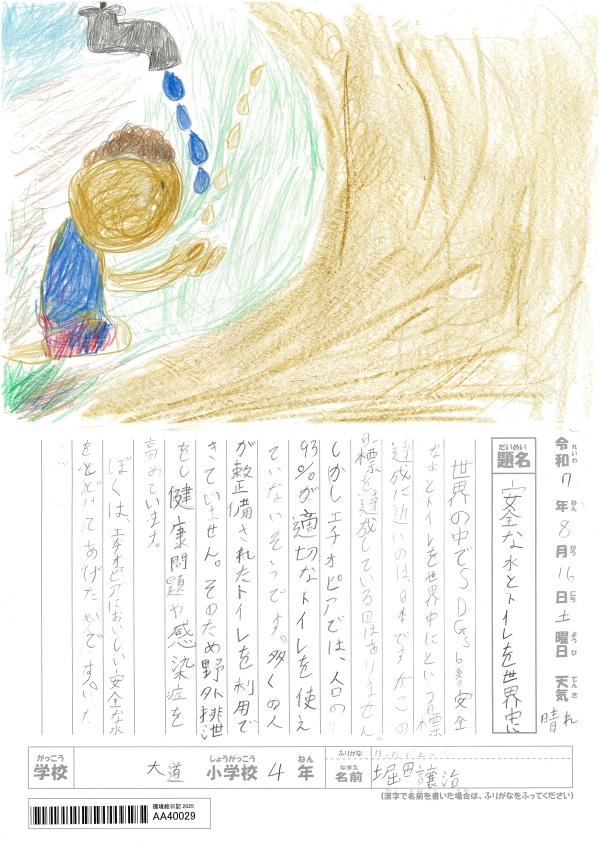 令和 7 年 8 月 16 日 土 曜日 天気 晴れ
れいわ ねん がつ にち ようび てんき
だいめい
題名 安全な水とトイレを世界中に
世界の中でSDGs6番安全
な水とトイレを世界中にという目標
達成に近いのは、日本ですがこの
目標を達成している国はありません
しかしエチオピアでは、人口の
93%が適切なトイレを使え
ていないそうです。多くの人
が整備されたトイレを利用で
きていません。そのため野外排泄
をし健康問題や感染症を
高めています。
ぼくは、エチオピアにおいしい安全な水
をとどけてあげたいです。
がっこう しょうがっこう ねん
学校 大道 小学校 4 年
ふりがな
なまえ
名前 堀田 譲治
(漢字で名前を書いた場合は、ふりがなをふってください)
環境絵日記 2025
AA40029